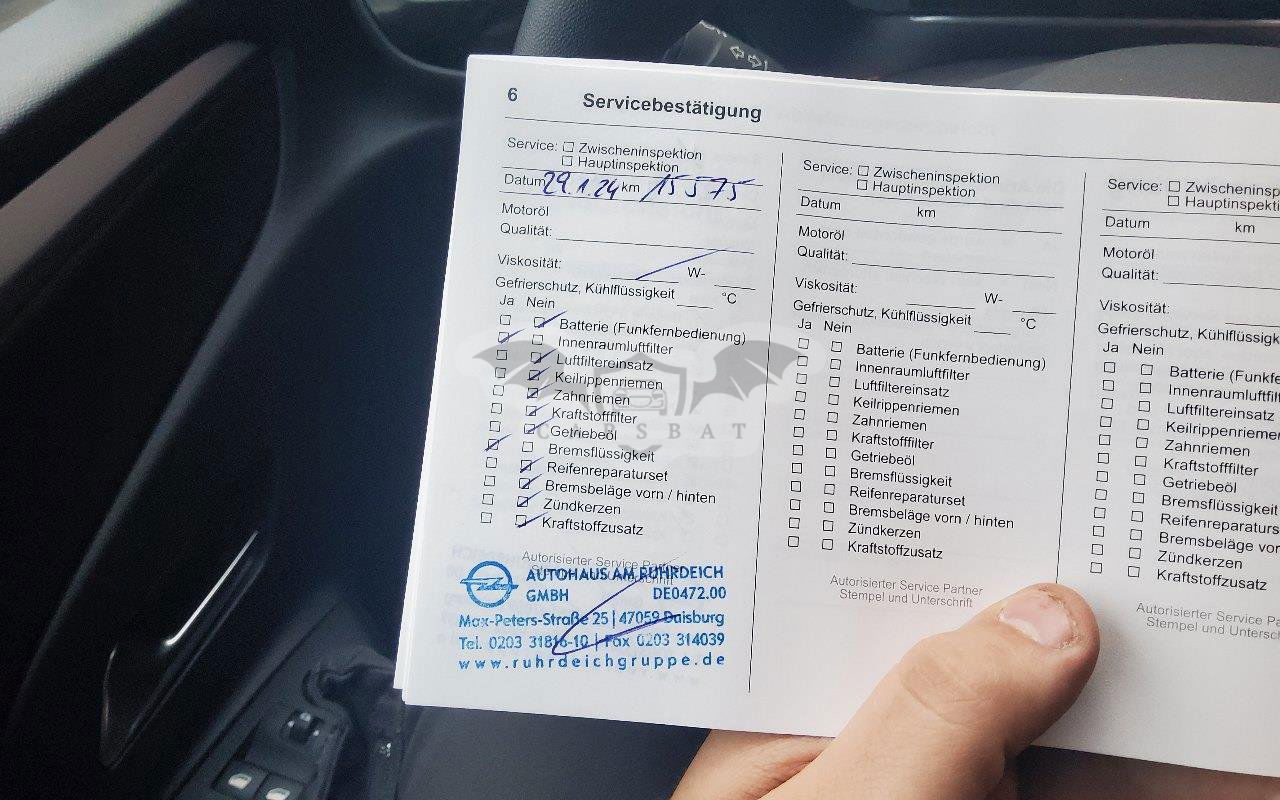 6 Servicebestätigung
Service: ☐ Zwischeninspektion
☐ Hauptinspektion
Datum 29.1.24 km 15575
Motoröl
Qualität:
Viskosität: W-
Gefrierschutz, Kühlflüssigkeit °C
Ja Nein
Batterie (Funkfernbedienung)
Innenraumluftfilter
Luftfiltereinsatz
Keilrippenriemen
Zahnriemen
Kraftstofffilter
Getriebeöl
Bremsflüssigkeit
Reifenreparaturset
Bremsbeläge vorn / hinten
Zündkerzen
Kraftstoffzusatz
Autorisierter Service Partner
Stempel und Unterschrift
AUTOHAUS AM RUHRDEICH
GMBH DE0472.00
Max-Peters-Straße 25 | 47059 Duisburg
Tel. 0203 31816-10 | Fax 0203 314039
www.ruhrdeichgruppe.de
Service: ☐ Zwischeninspektion
☐ Hauptinspektion
Datum km
Motoröl
Qualität:
Viskosität: W-
Gefrierschutz, Kühlflüssigkeit °C
Ja Nein
Batterie (Funkfernbedienung)
Innenraumluftfilter
Luftfiltereinsatz
Keilrippenriemen
Zahnriemen
Kraftstofffilter
Getriebeöl
Bremsflüssigkeit
Reifenreparaturset
Bremsbeläge vorn / hinten
Zündkerzen
Kraftstoffzusatz
Autorisierter Service Partner
Stempel und Unterschrift
Service: ☐ Zwischeninsp
☐ Hauptinspekti
Datum km
Motoröl
Qualität:
Viskosität:
Gefrierschutz, Kühlflüssigk
Ja Nein
Batterie (Funkfe
Innenraumluftfil
Luftfiltereinsatz
Keilrippenrieme
Zahnriemen
Kraftstofffilter
Getriebeöl
Bremsflüssigkeit
Reifenreparaturs
Bremsbeläge vor
Zündkerzen
Kraftstoffzusatz
Autorisierter Service Pa
Stempel und Untersch
CARSBAT